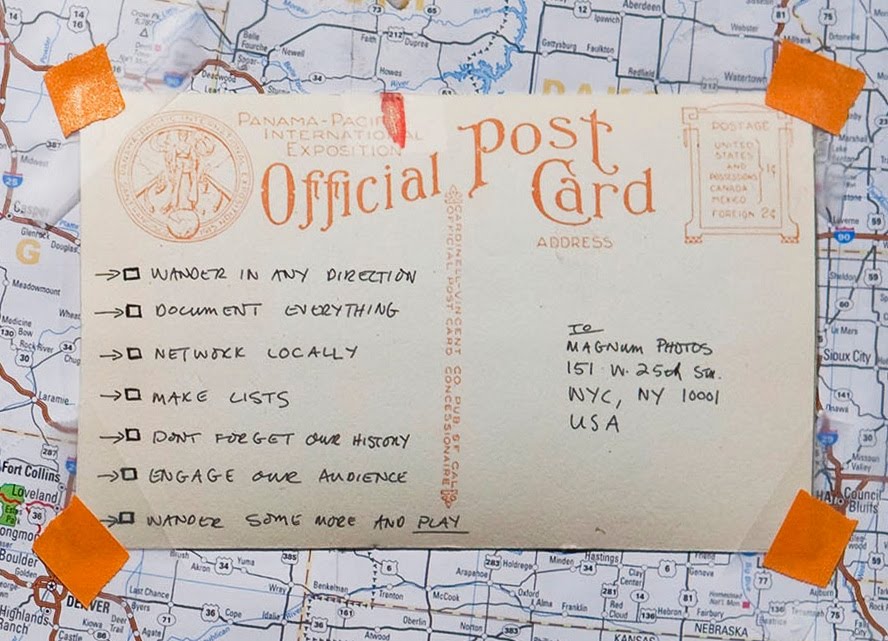 PANAMA-PACIFIC
INTERNATIONAL
EXPOSITION
Official Post Card
POSTAGE
UNITED
STATES
AND
POSSESSIONS
CANADA
MEXICO
1¢
FOREIGN 2¢
ADDRESS
CARDINELL-VINCENT CO. PUB. S.F. CAL.
OFFICIAL POST CARD CONCESSIONAIRE
→ □ WANDER IN ANY DIRECTION
→ □ DOCUMENT EVERYTHING
→ □ NETWORK LOCALLY
→ □ MAKE LISTS
→ □ DONT FORGET OUR HISTORY
→ □ ENGAGE OUR AUDIENCE
→ □ WANDER SOME MORE AND PLAY
TO
MAGNUM PHOTOS
151 W. 25th St.
NYC, NY 10001
USA
Aberdeen
Ipswich
Webster
Belle
Fourche
Newell
Faith
Dupree
Gettysburg
Faulkton
Redfield
Milbank
Watertown
Deadwood
Howes
Midwest
Casper
Glenrock
Douglas
G
Meadowmount
Medicine
Bow
Rock River
Laramie
Fort Collins
Loveland
Boulder
Golden
DENVER
Highlands
Ranch
Castle
Luverne
Sheldon
Le Mars
Sioux City
Onawa
Missouri
Valley
Council
Bluffs
Glenwood
Auburn
Last Chance
Byers
Deer
Trail
Agate
Kiowa
Akron
Yuma
Wray
Cope
Idalia
Benkelman
Trenton
McCook
Atwood
Oberlin
Norton
Arapahoe
Holdrege
Minden
Hastings
Oxford
Alma
Franklin
Red
Cloud
Clay
Center
Geneva
Friend
Hebron
Fairbury
NEBRASKA
KANSAS